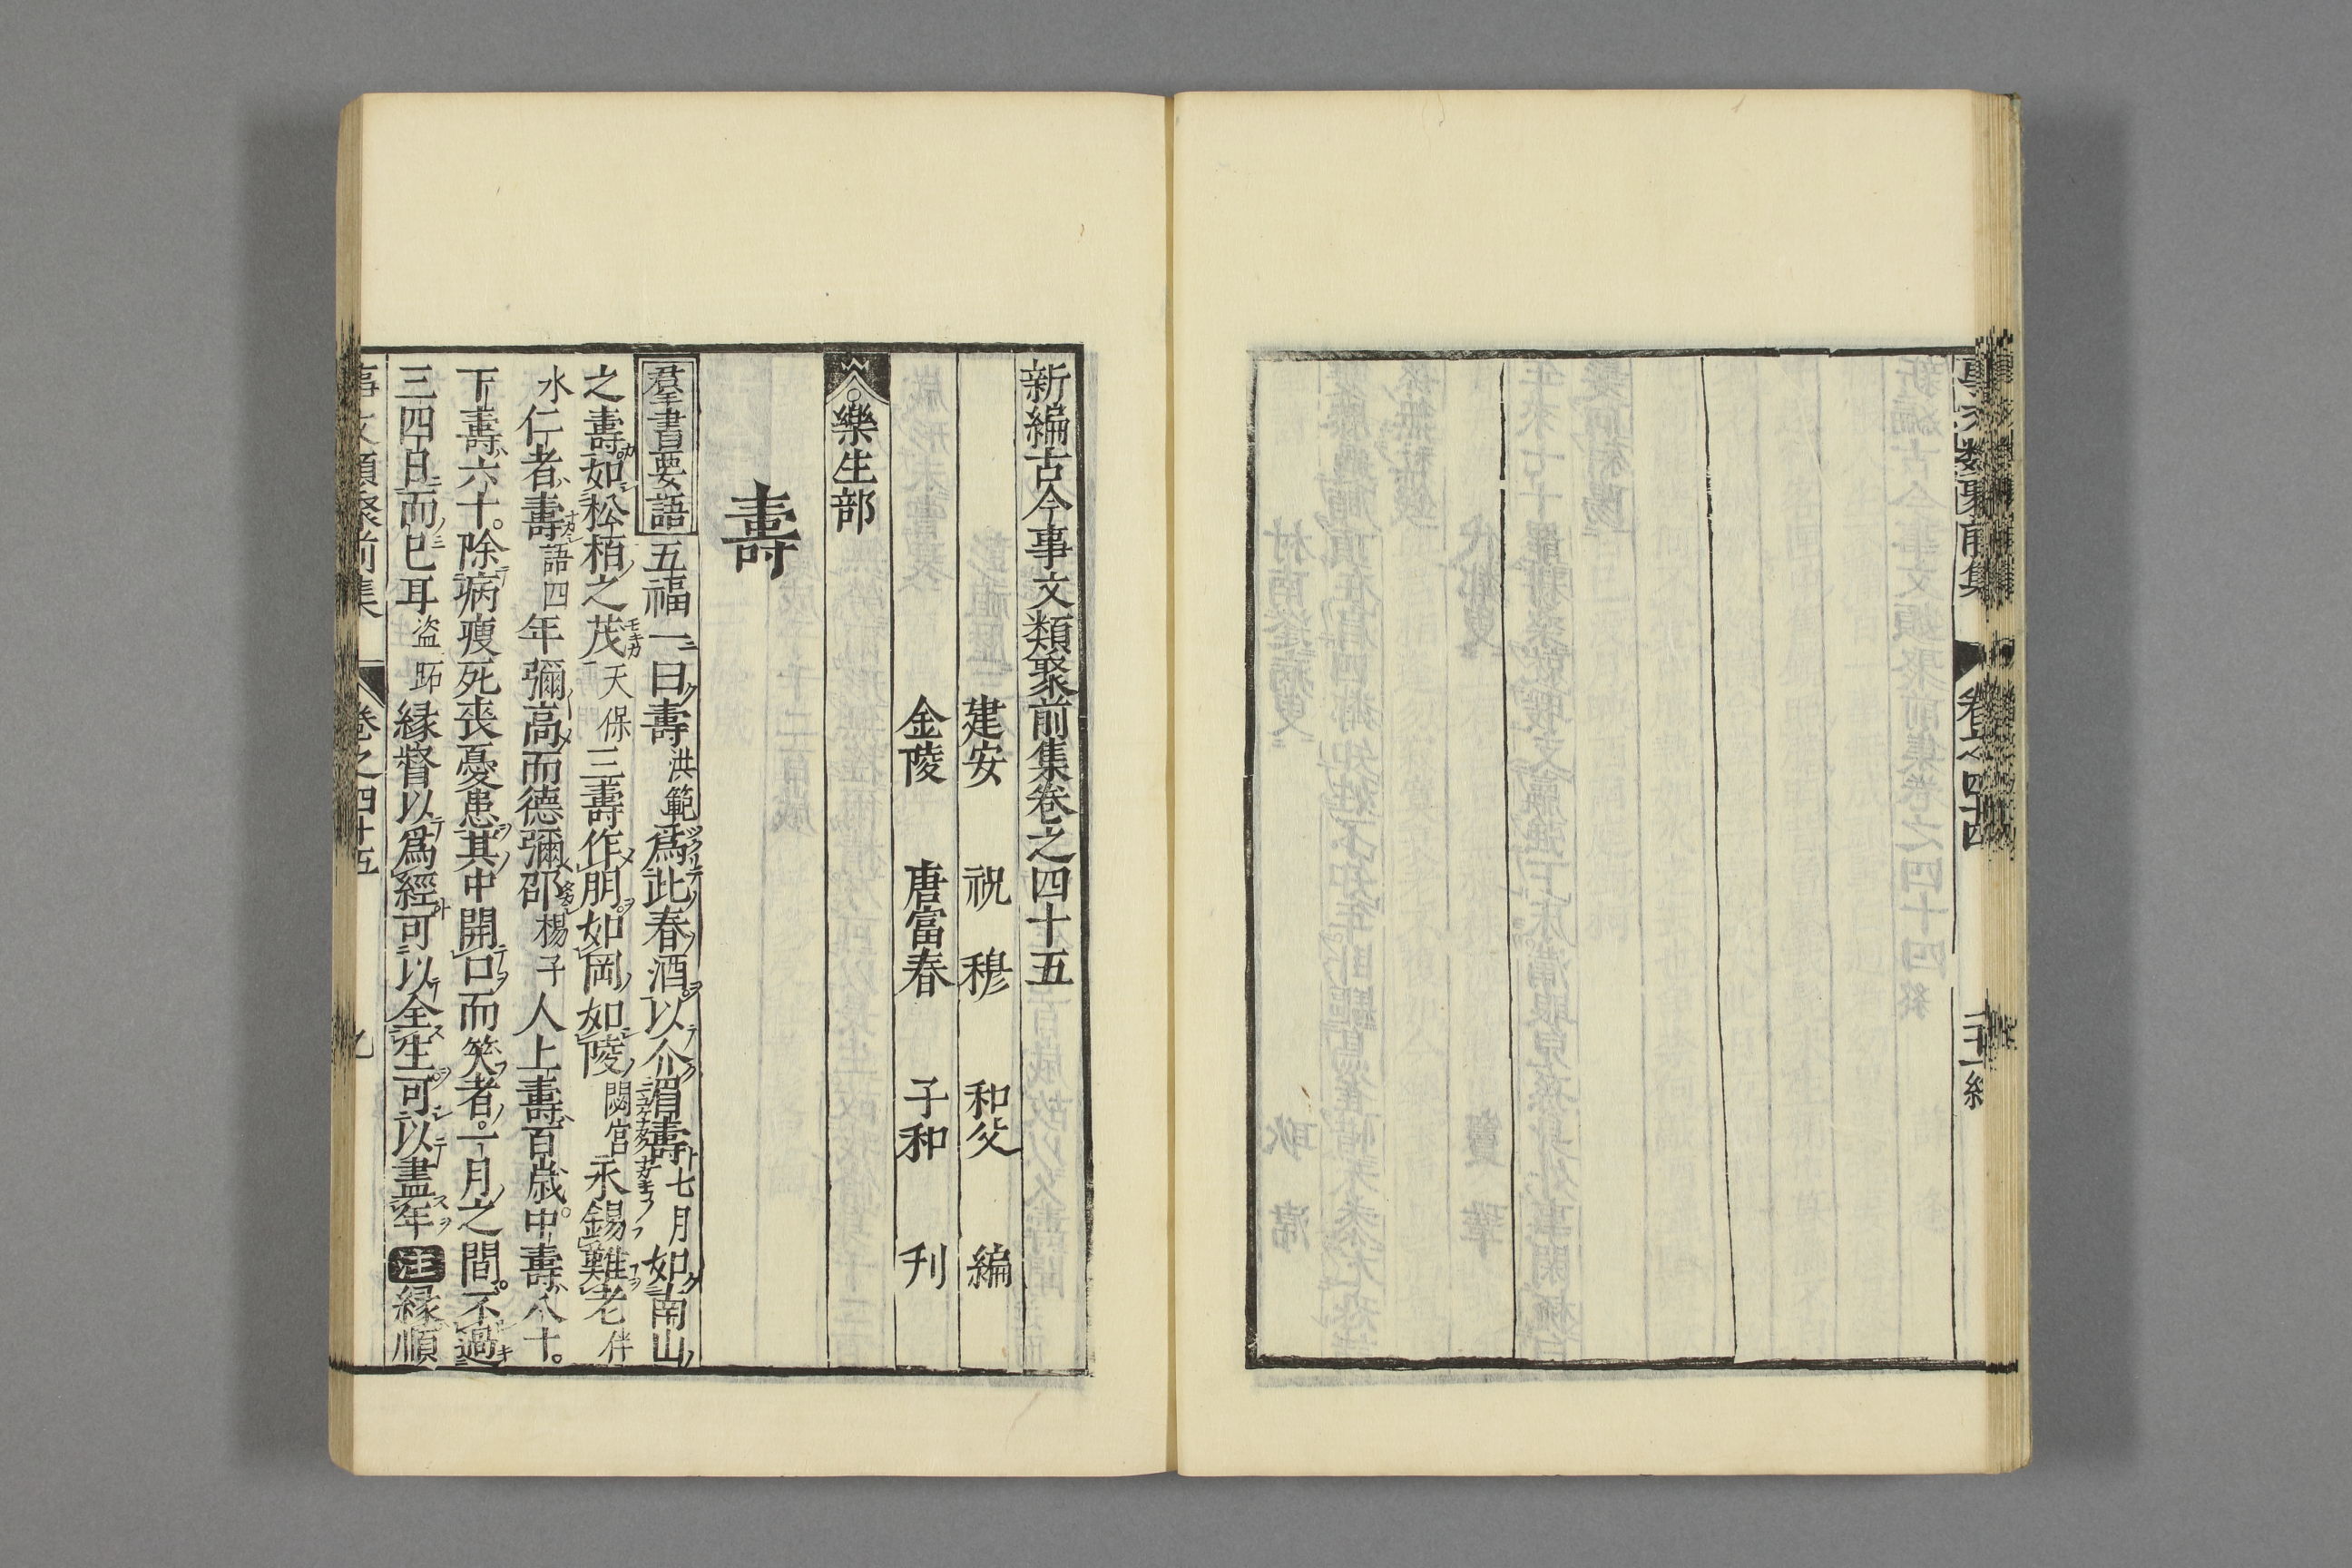 事文類聚前集 卷之四十四
新編古今事文類聚前集卷之四十五
建安 祝 穆 和父 編
金陵 唐富春 子和 刋
樂生部
壽
羣書要語 五福一曰壽洪範爲此春酒以介眉壽七月如南山
之壽如松栢之茂天保三壽作朋如岡如陵閟宮永錫難老泮
水仁者壽語四年彌高而德彌邵楊子人上壽百歲中壽八十。
下壽六十。除病瘦死丧憂患其中開口而笑者。一月之間。不過
三四日而已耳盗跖緣督以爲經可以全生可以盡年注緣順
事文類聚前集 卷之四十五